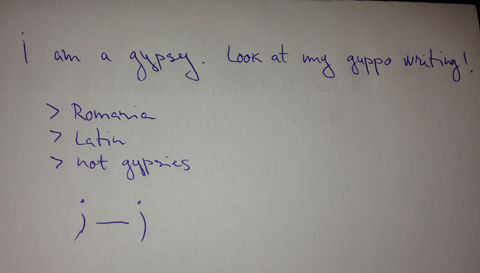 i am a gypsy. Look at my gyppo writing!
> Romania
> Latin
> not gypsies
;—;